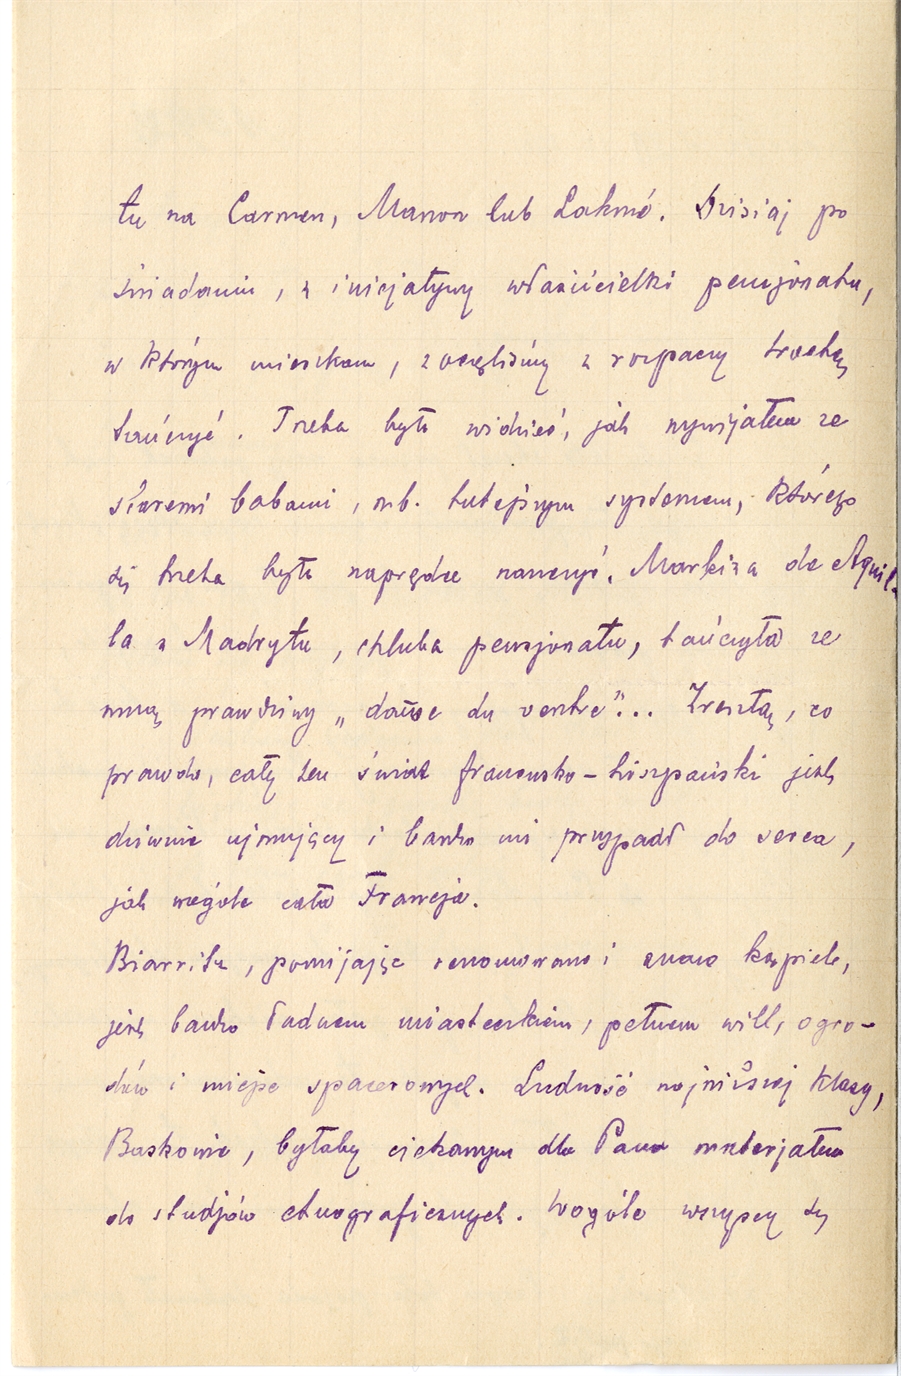 tę na Carmen, Manon lub Lakmé. Dzisiaj po
śniadaniu, z inicjatywy właścicielki pensjonatu,
w którym mieszkam, zaczęliśmy z rozpaczy trochę
tańczyć. Trzeba było widzieć, jak wywijałem ze
staremi babami, nb. tutejszym systemem, którego
się trzeba było naprędce nauczyć. Markiza de Aquil-
la z Madrytu, chluba pensjonatu, tańczyła ze
mną prawdziwy „danse du ventre"... Zresztą, co
prawda, cały ten świat francusko-hiszpański jest
dziwnie ujmujący i bardzo mi przypadł do serca,
jak wogóle cała Francja.
Biarritz, pomijając renomowane i znane kąpiele,
jest bardzo ładnem miasteczkiem, pełnem will, ogro-
dów i miejsc spacerowych. Ludność najniższej klasy,
Baskowie, byłaby ciekawym dla Pana materjałem
do studjów etnograficznych. Wogóle wszyscy są